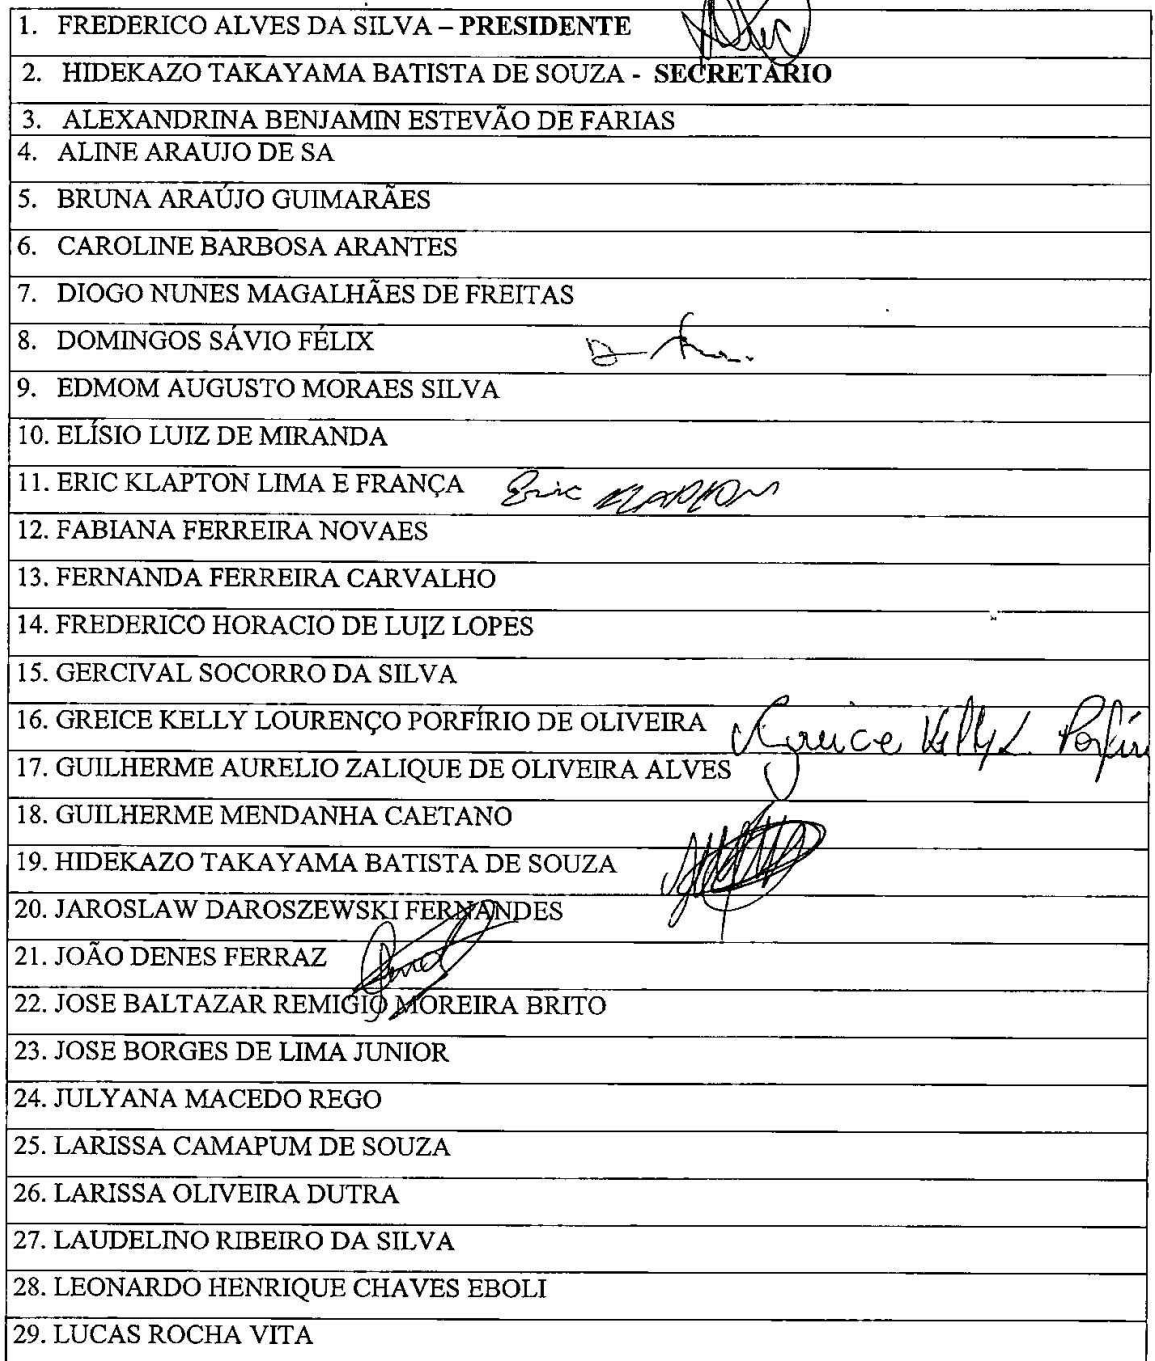 1. FREDERICO ALVES DA SILVA – PRESIDENTE
2. HIDEKAZO TAKAYAMA BATISTA DE SOUZA - SECRETÁRIO
3. ALEXANDRINA BENJAMIN ESTEVÃO DE FARIAS
4. ALINE ARAUJO DE SA
5. BRUNA ARAÚJO GUIMARÃES
6. CAROLINE BARBOSA ARANTES
7. DIOGO NUNES MAGALHÃES DE FREITAS
8. DOMINGOS SÁVIO FÉLIX
9. EDMOM AUGUSTO MORAES SILVA
10. ELÍSIO LUIZ DE MIRANDA
11. ERIC KLAPTON LIMA E FRANÇA Eric Klapton
12. FABIANA FERREIRA NOVAES
13. FERNANDA FERREIRA CARVALHO
14. FREDERICO HORACIO DE LUIZ LOPES
15. GERCIVAL SOCORRO DA SILVA
16. GREICE KELLY LOURENÇO PORFÍRIO DE OLIVEIRA Greice Kelly L Porfíri
17. GUILHERME AURELIO ZALIQUE DE OLIVEIRA ALVES
18. GUILHERME MENDANHA CAETANO
19. HIDEKAZO TAKAYAMA BATISTA DE SOUZA
20. JAROSLAW DAROSZEWSKI FERNANDES
21. JOÃO DENES FERRAZ
22. JOSE BALTAZAR REMIGIO MOREIRA BRITO
23. JOSE BORGES DE LIMA JUNIOR
24. JULYANA MACEDO REGO
25. LARISSA CAMAPUM DE SOUZA
26. LARISSA OLIVEIRA DUTRA
27. LAUDELINO RIBEIRO DA SILVA
28. LEONARDO HENRIQUE CHAVES EBOLI
29. LUCAS ROCHA VITA